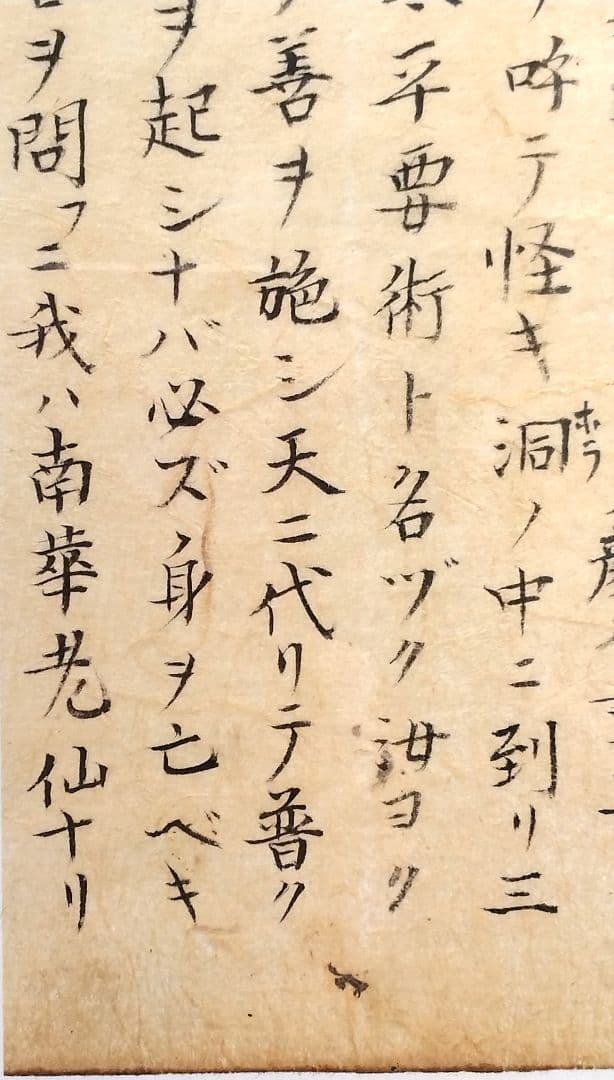 呼テ怪キ洞ノ中ニ到リ三
ホラ
平要術ト名ヅク汝ヨク
善ヲ施シ天ニ代リテ普ク
ヲ起シナバ必ズ身ヲ亡ベキ
ヲ問フニ我ハ南華老仙ナリ